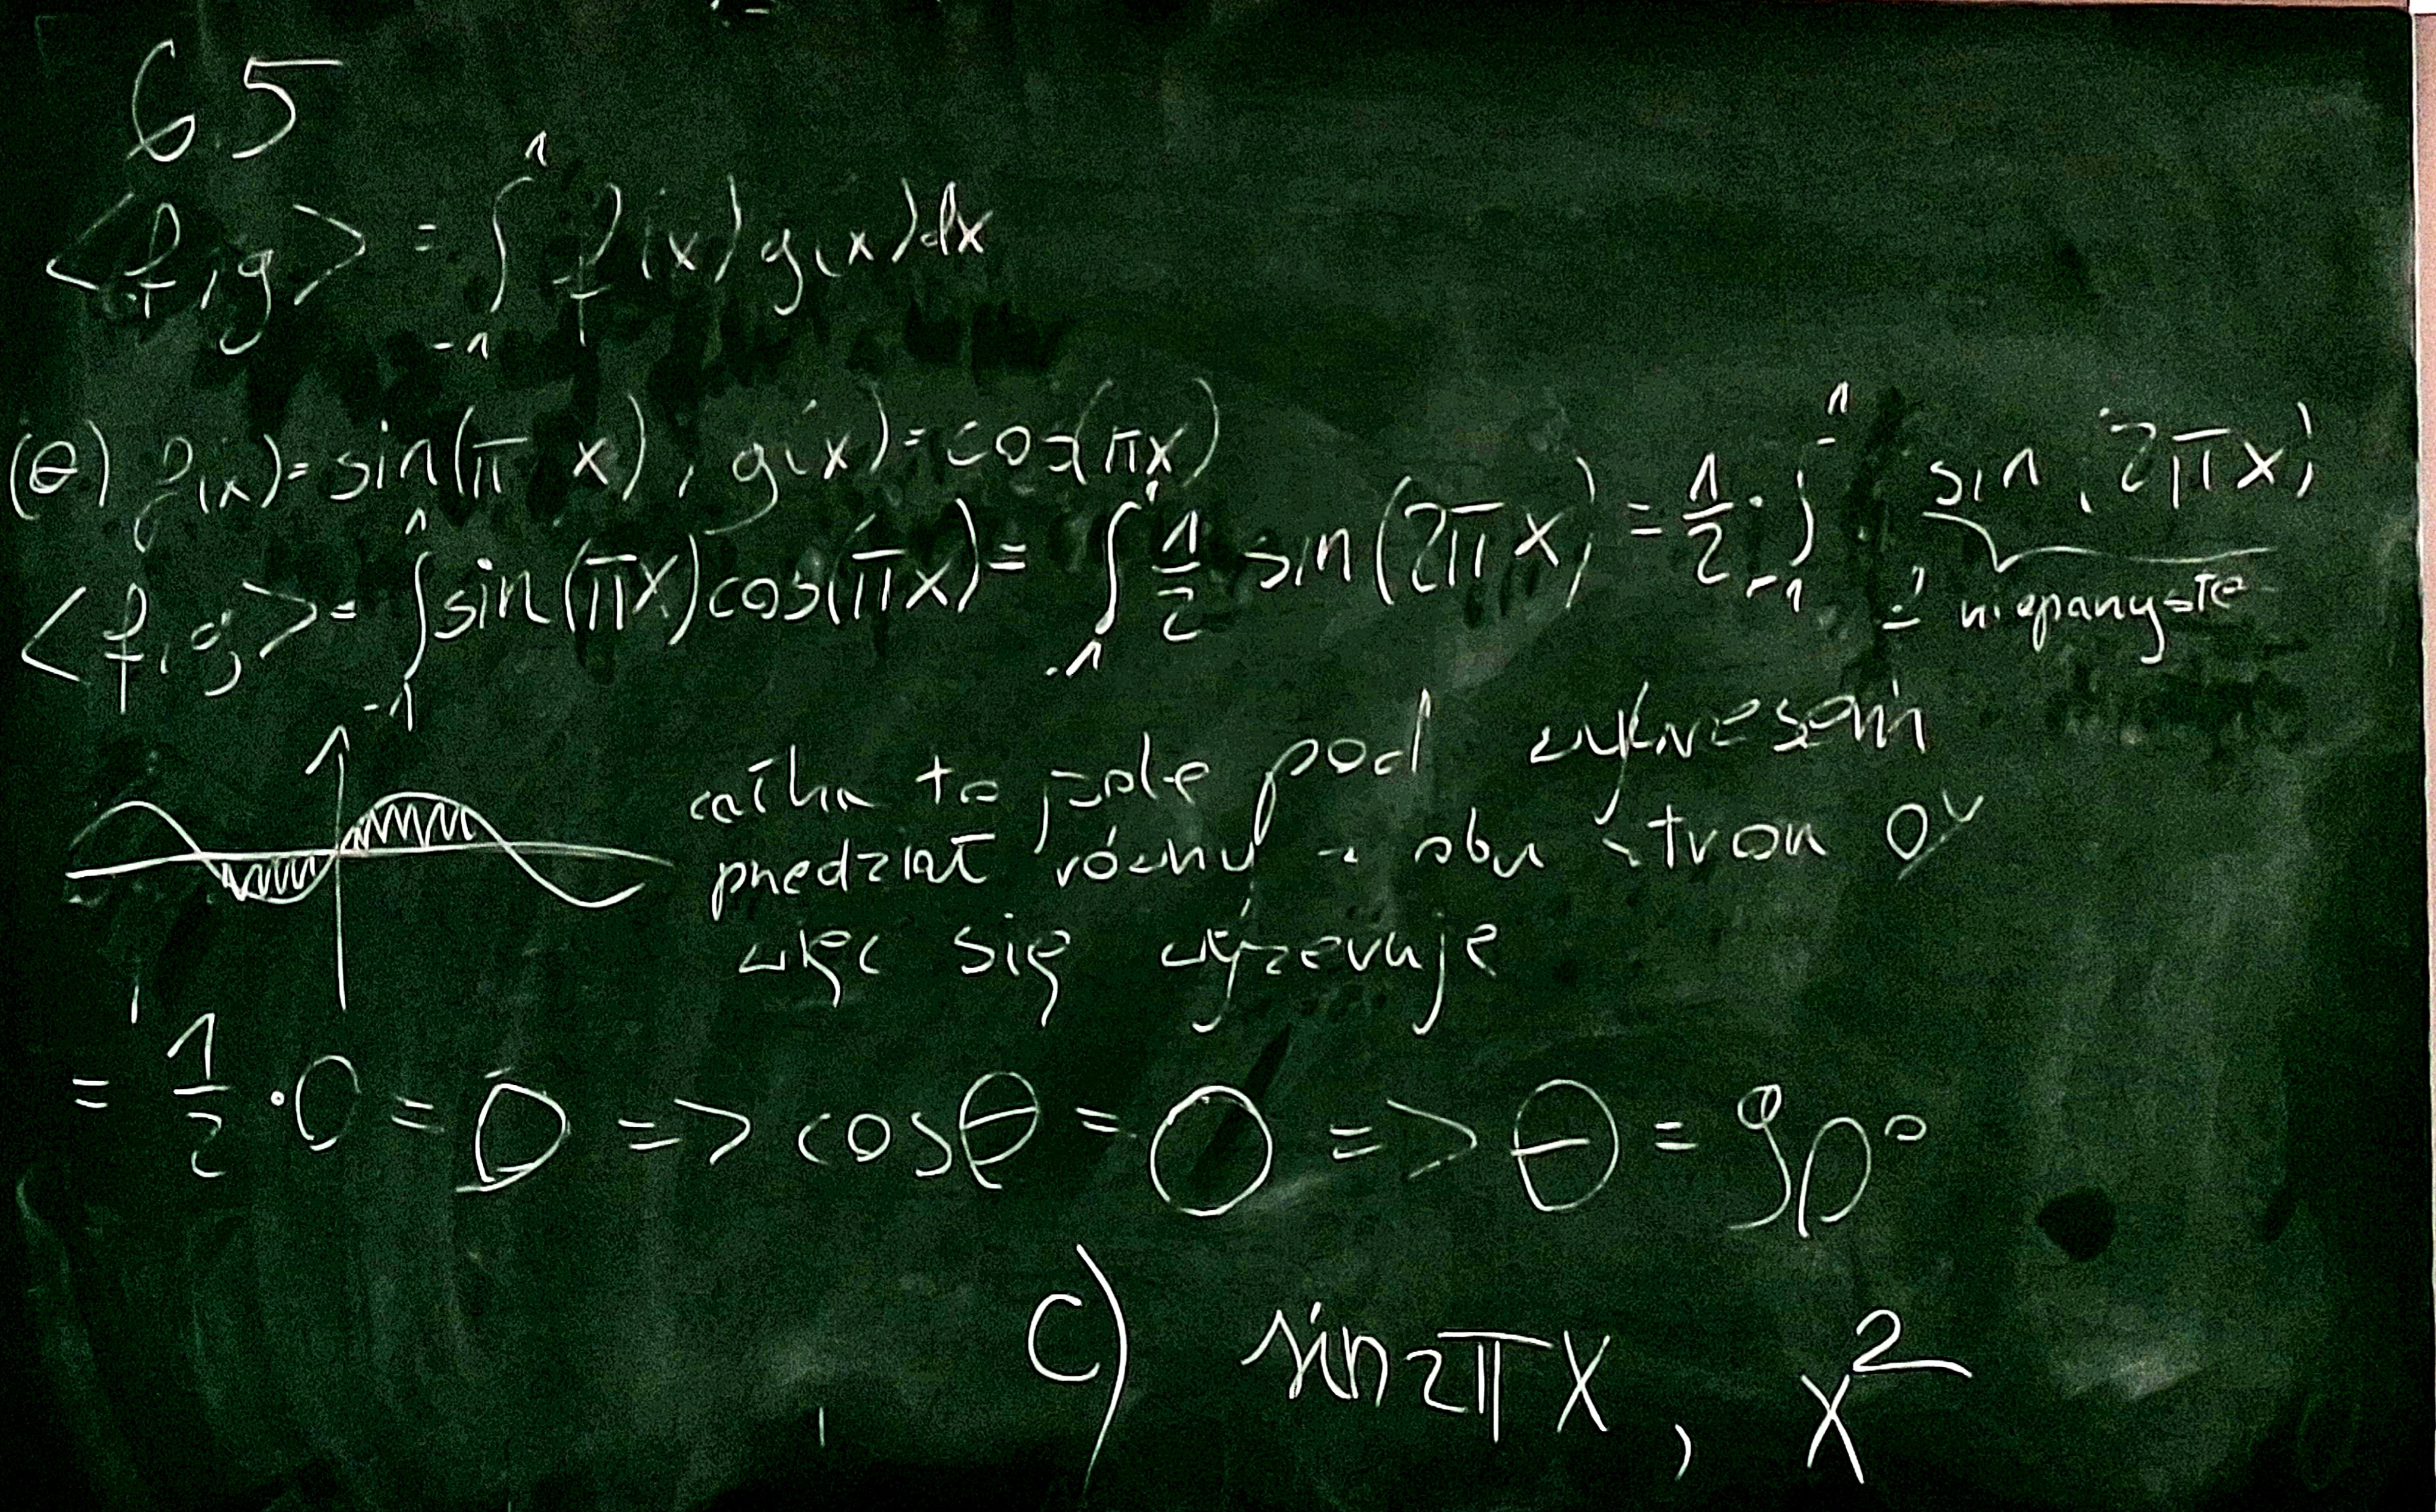 6.5
<f,g> = ∫_{-1}^{1} f(x) g(x) dx
(a) f(x) = sin(πx), g(x) = cos(πx)
<f,g> = ∫_{-1}^{1} sin(πx)cos(πx) = ∫_{-1}^{1} 1/2 sin(2πx) = 1/2 · ∫_{-1}^{1} sin(2πx)
nieparzyste
całka to pole pod wykresem
przedział równy z obu stron 0y
więc się wyzeruje
= 1/2 · 0 = 0 => cosθ = 0 => θ = 90°
c) sin2πx, x²